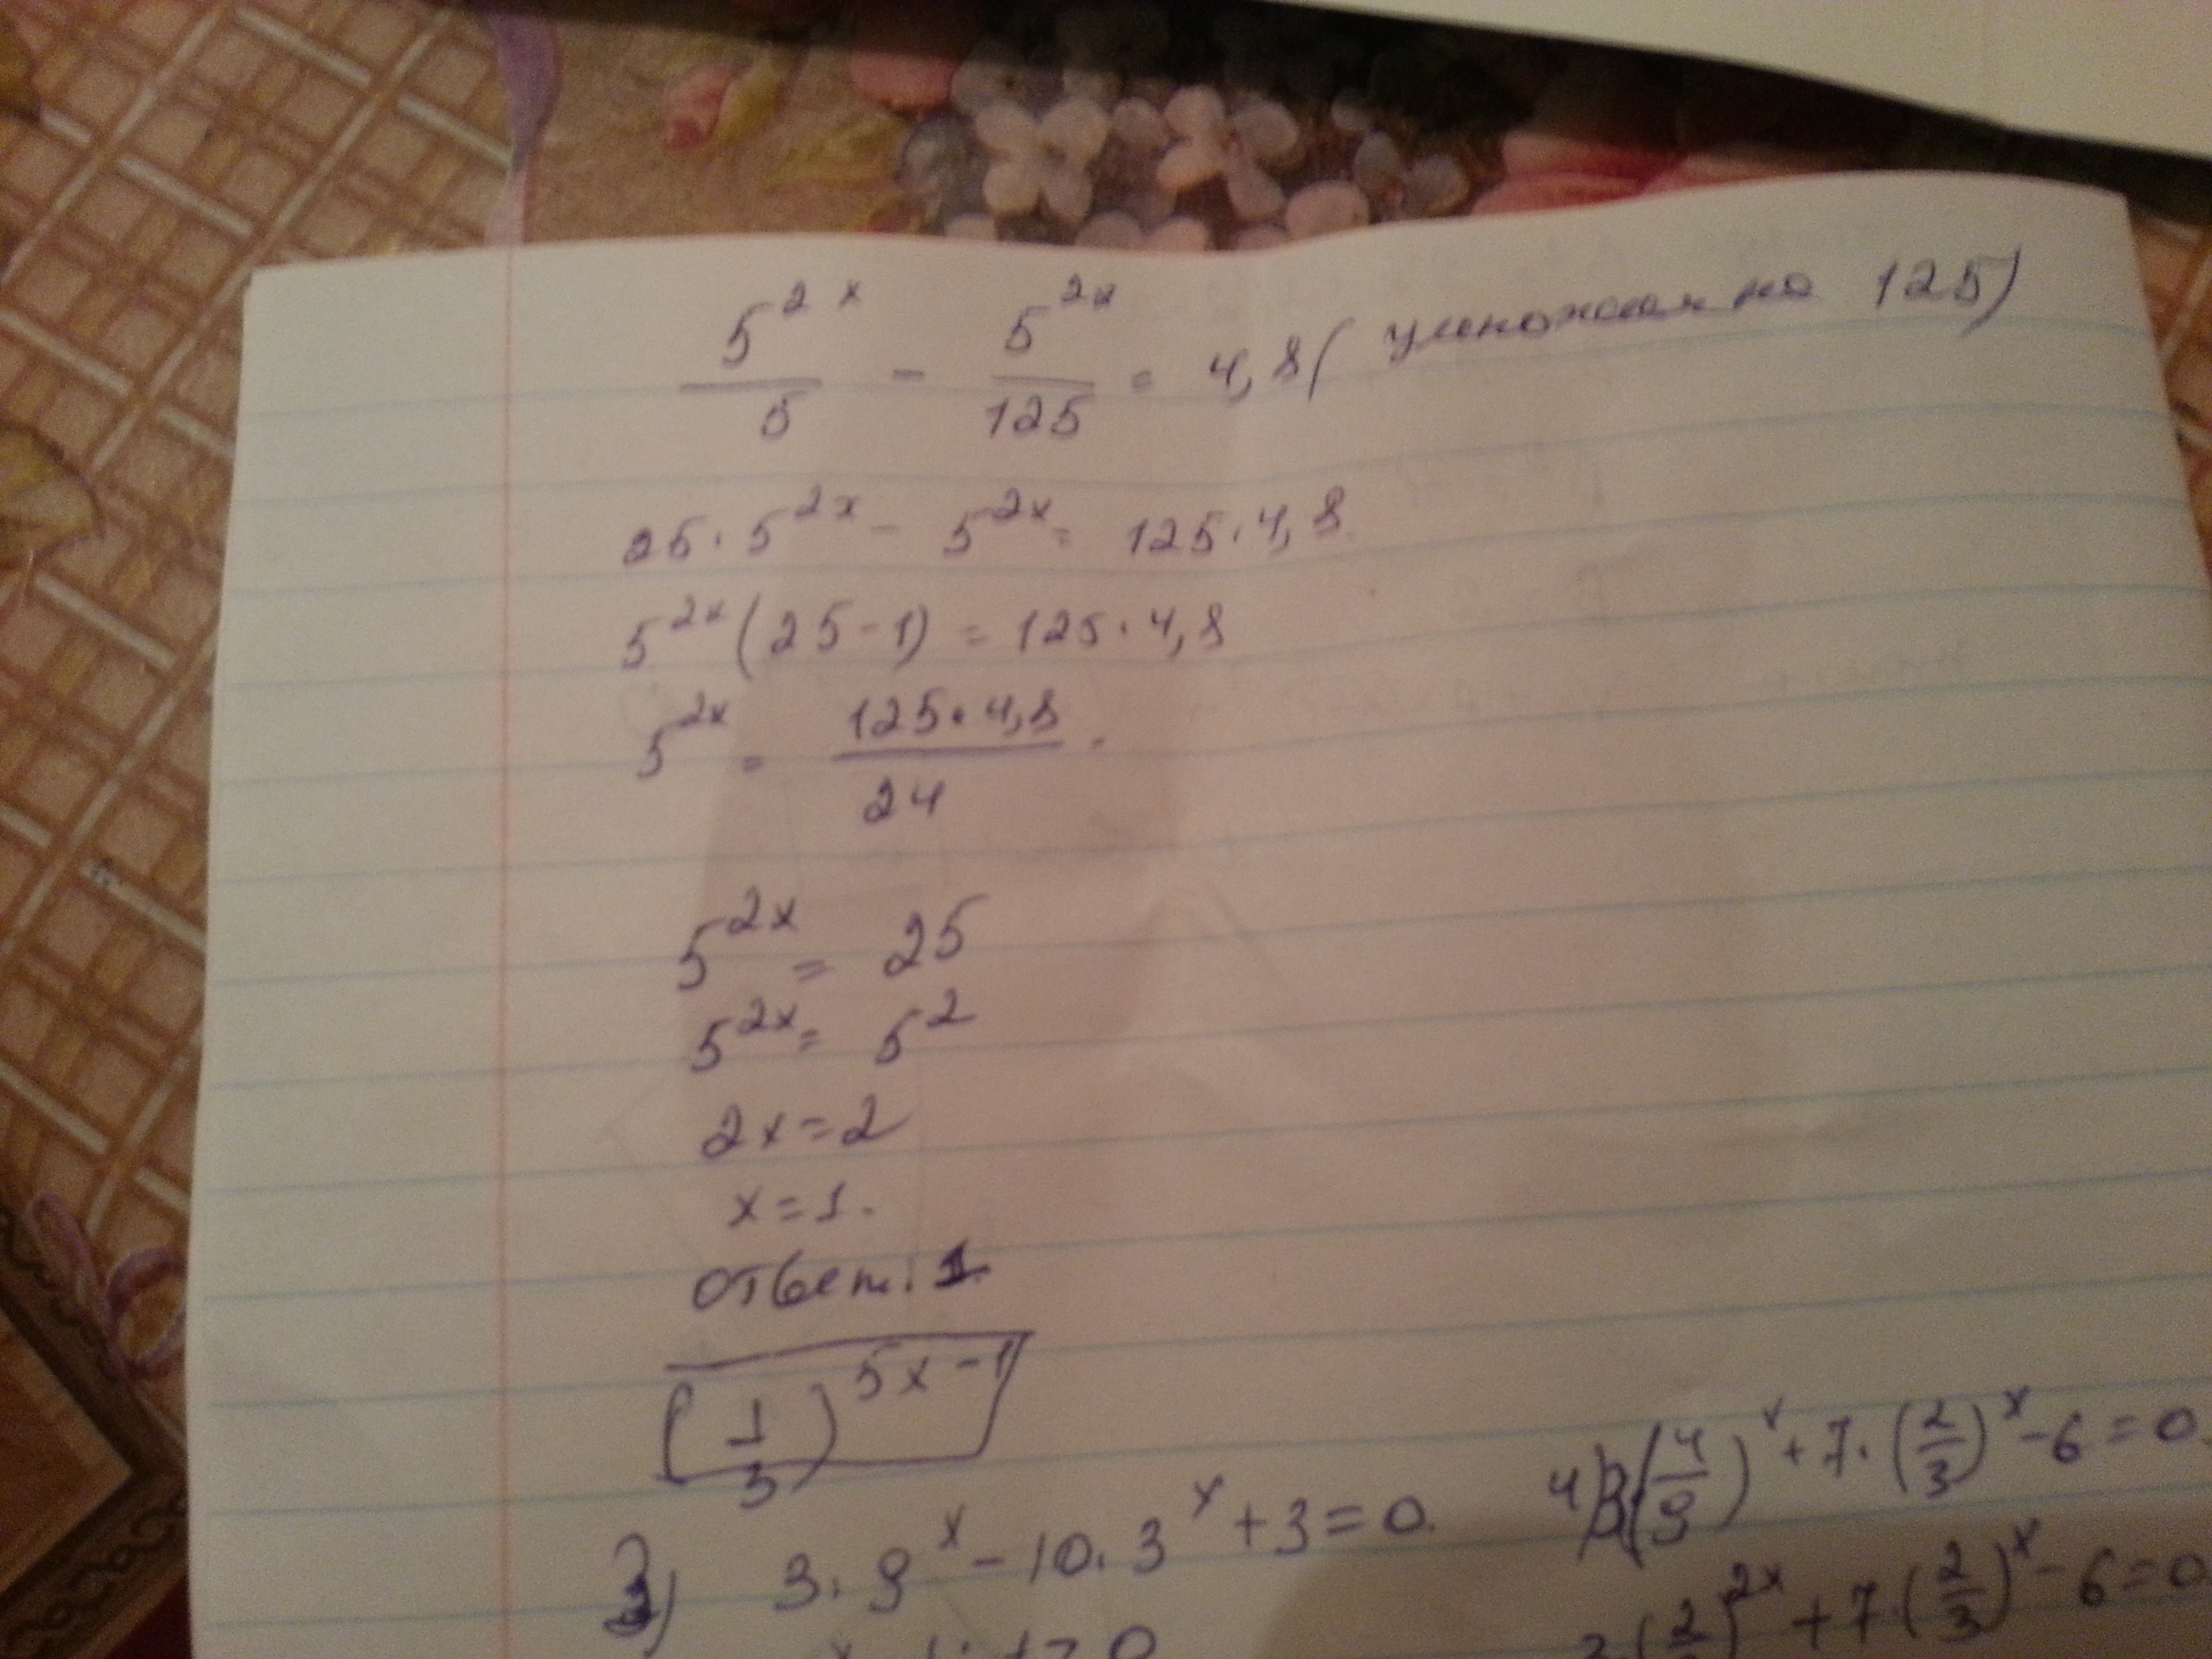 5^{2x}/5 - 5^{2x}/125 = 4,8 (умножаем на 125)
25·5^{2x} - 5^{2x} = 125·4,8
5^{2x}(25-1) = 125·4,8
5^{2x} = 125·4,8/24.
5^{2x} = 25
5^{2x} = 5^2
2x=2
x=1.
Ответ: 1.
(1/3)^{5x-1}
3) 3·9^x - 10·3^x + 3 = 0.
4) 3(4/9)^x + 7·(2/3)^x - 6 = 0.
)^{2x} + 7·(2/3)^x - 6 = 0